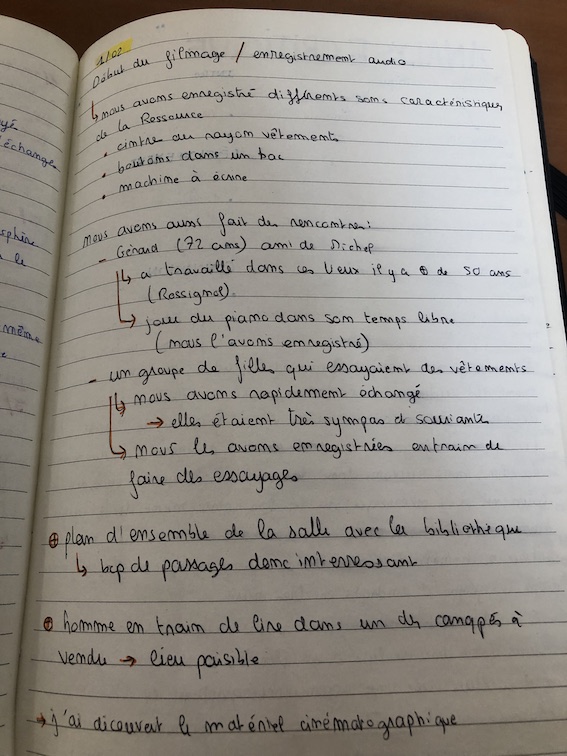 yé
échange
sphère
le
même
1/02
Début du filmage / enregistrement audio
↳ nous avons enregistré différents sons caractéristiques
de la Ressource
• cintre du rayon vêtements
• boutons dans un bac
• machine à écrire
nous avons aussi fait des rencontres :
- Gérard (72 ans) ami de Michel
↳ a travaillé dans ces lieux il y a ⊕ de 50 ans
(Rossignol)
↳ joue du piano dans son temps libre
(nous l'avons enregistré)
- un groupe de filles qui essayaient des vêtements
↳ nous avons rapidement échangé
→ elles étaient très sympas et souriantes
↳ nous les avons enregistrées entrain de
faire des essayages
⊕ plan d'ensemble de la salle avec la bibliothèque
↳ bcp de passages donc interressant
⊕ homme en train de lire dans un des canapés à
vendre → lieu paisible
→ j'ai découvert le matériel cinématographique